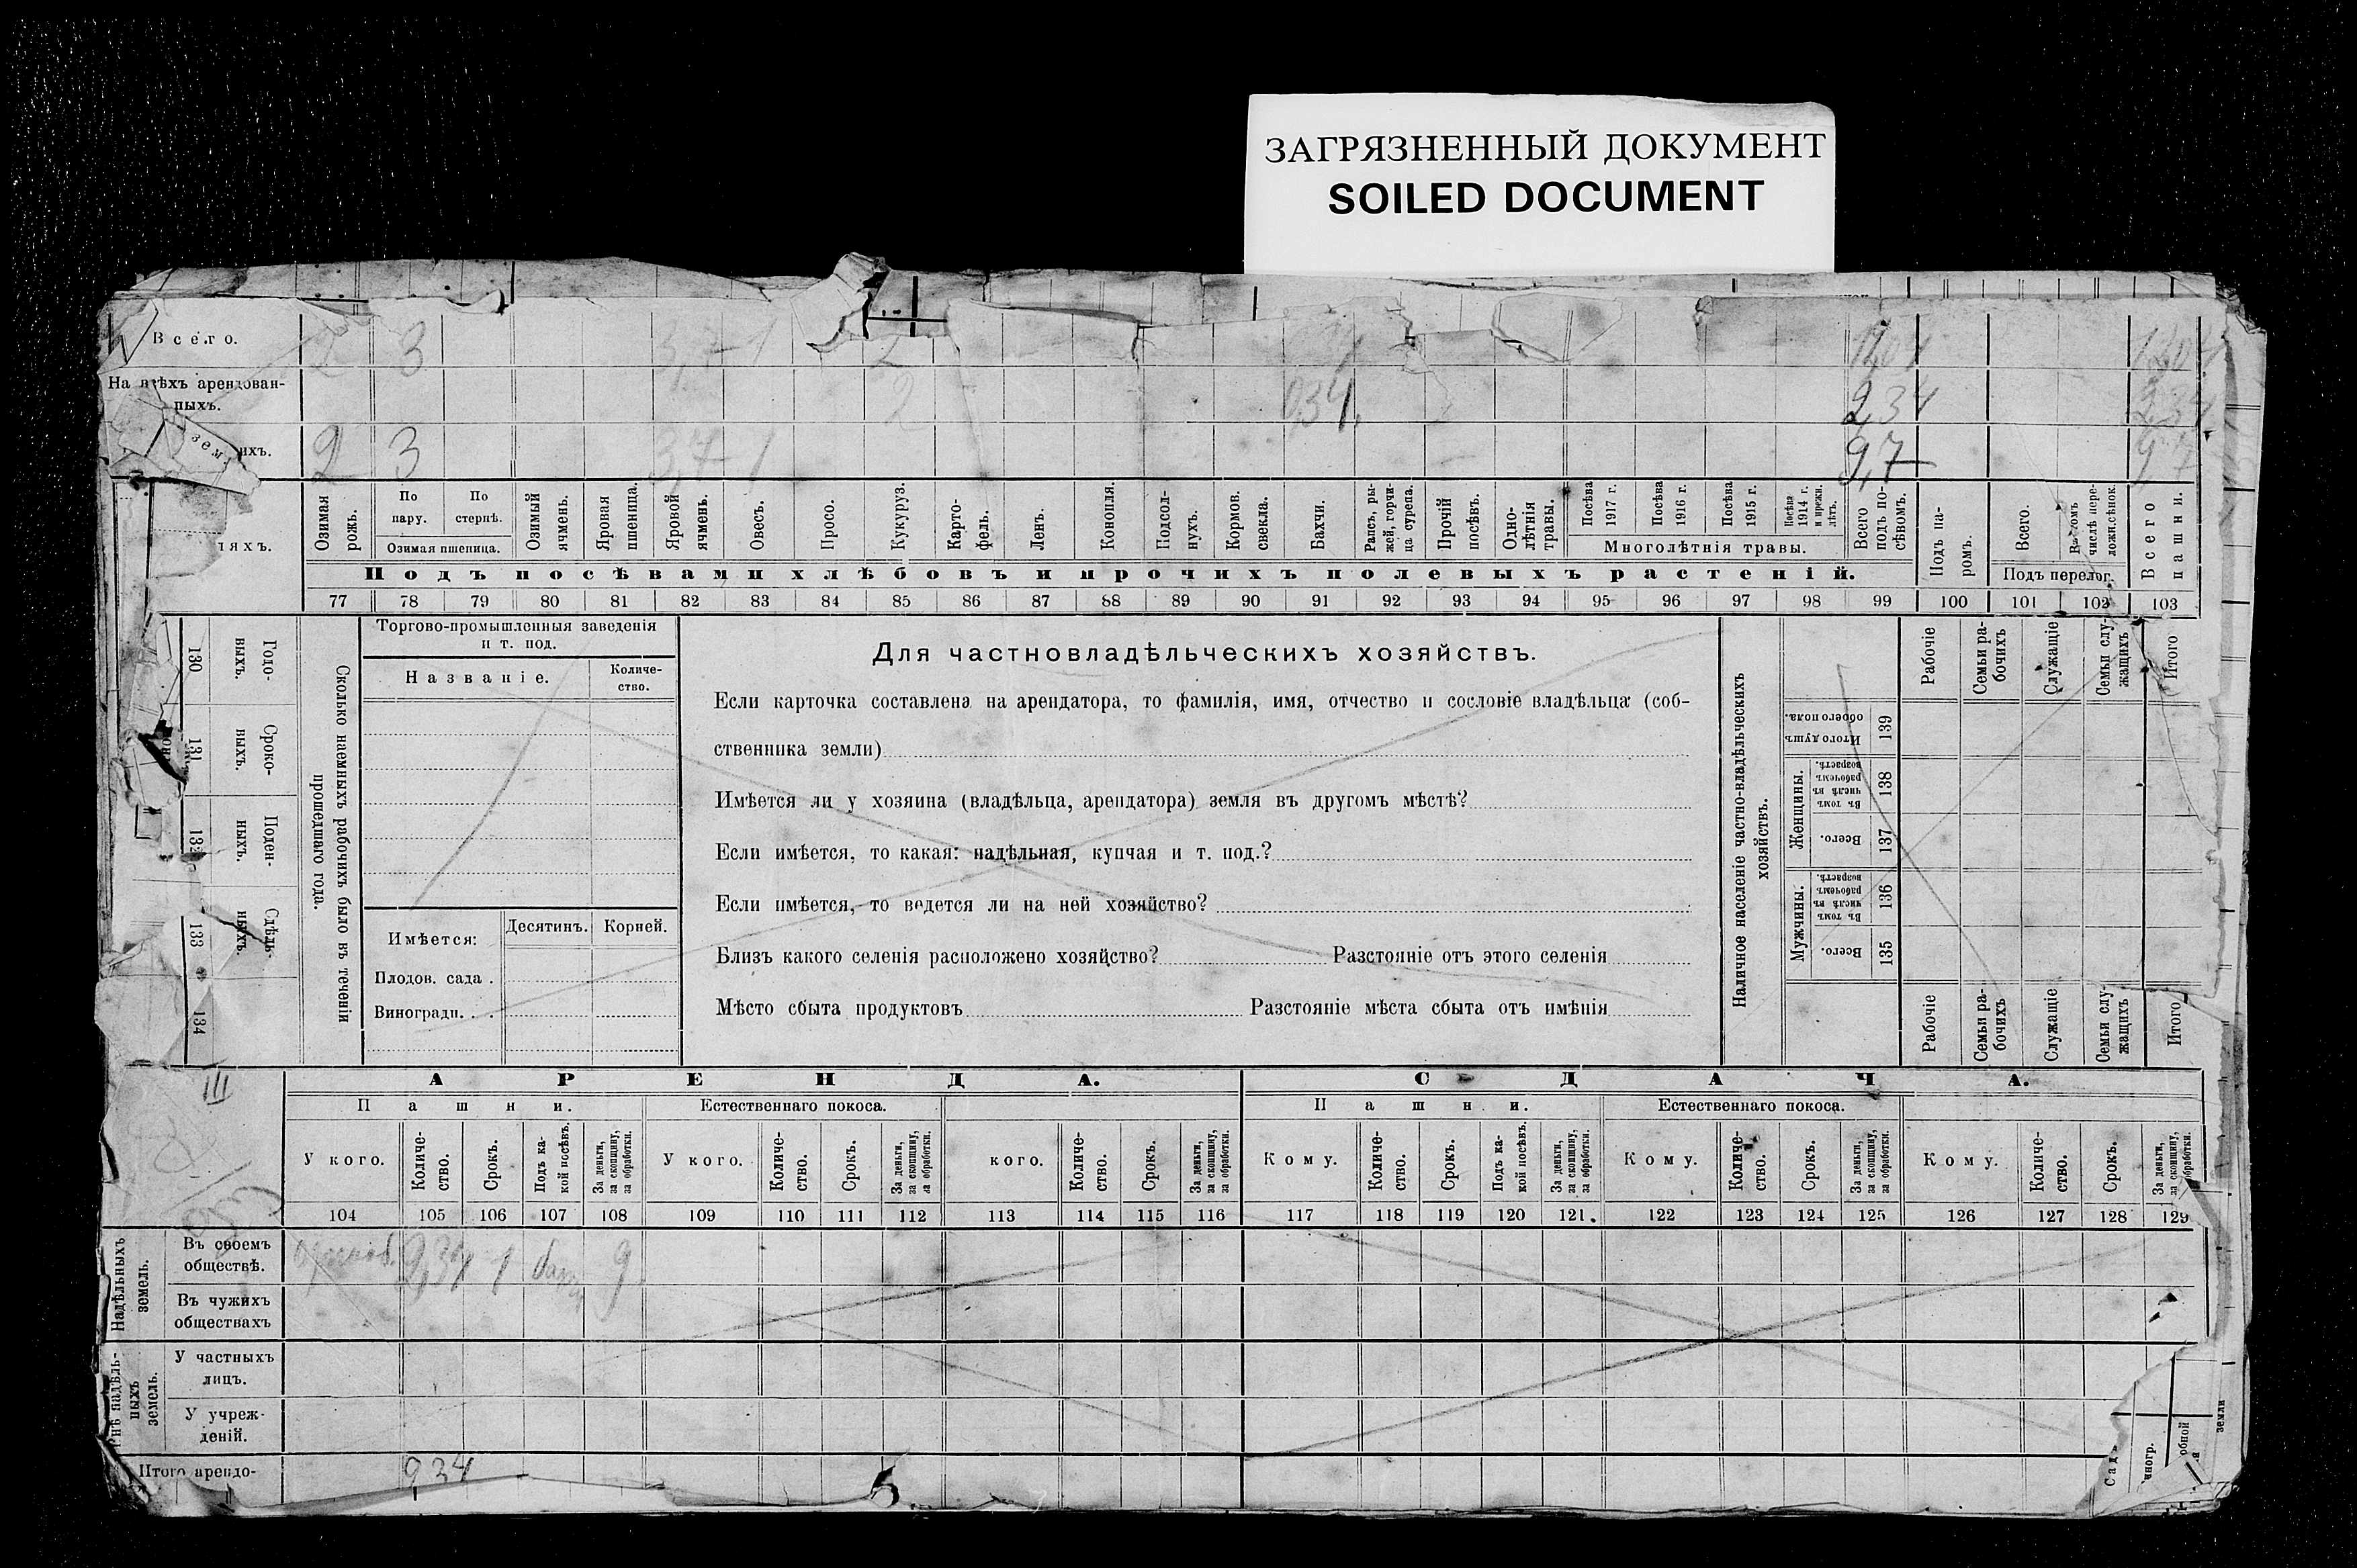 ЗАГРЯЗНЕННЫЙ ДОКУМЕНТ
SOILED DOCUMENT
Всего. 2 3 3,7 1 2 12,04
На арендован-
ныхъ. 2 0,34 2,34 2,34
ихъ. 2 3 3,7 1 9,7 9,7
зем.
ляхъ.
Озимая рожь.
По пару.
По стернѣ.
Озимая пшеница.
Озимый ячмень.
Яровая пшеница.
Яровой ячмень.
Овесъ.
Просо.
Кукуруз.
Карто-фель.
Ленъ.
Конопля.
Подсол-нухъ.
Кормов. свекла.
Бахчи.
Рапсъ, ры-жей, горчи-ца сурепа.
Прочій посѣвъ.
Одно-лѣтнія травы.
Посѣва 1917 г.
Посѣва 1916 г.
Посѣва 1915 г.
Посѣва 1914 г. и прежн. лѣтъ.
Многолѣтнія травы.
Всего подъ по-сѣвомъ.
Подъ па-ромъ.
Всего.
Въ томъ числѣ пере-ложн.сѣнок.
Подъ перелог.
Всего пашни.
Подъ посѣвами хлѣбовъ и прочихъ полевыхъ растеній.
77 78 79 80 81 82 83 84 85 86 87 88 89 90 91 92 93 94 95 96 97 98 99 100 101 102 103
130 Годо-ныхъ.
131 Сроко-ныхъ.
132 Поден-ныхъ.
133 Сдѣль-ныхъ.
134
Сколько наемныхъ рабочихъ было въ теченіи
прошедшаго года.
Торгово-промышленныя заведенія
и т. под.
Названіе.
Количе-ство.
Имѣется:
Десятинъ.
Корней.
Плодов. сада .
Виноградн. . .
Для частновладѣльческихъ хозяйствъ.
Если карточка составлена на арендатора, то фамилія, имя, отчество и сословіе владѣльца (соб-
ственника земли)
Имѣется ли у хозяина (владѣльца, арендатора) земля въ другомъ мѣстѣ?
Если имѣется, то какая: надѣльная, купчая и т. под.?
Если имѣется, то ведется ли на ней хозяйство?
Близъ какого селенія расположено хозяйство? Разстояніе отъ этого селенія
Мѣсто сбыта продуктовъ Разстояніе мѣста сбыта отъ имѣнія
Наличное населеніе частно-владѣльческихъ
хозяйствъ.
Рабочіе
Семьи ра-бочихъ
Служащіе
Семьи слу-жащихъ
Итого
Итого душъ обоего пола. 139
Женщины.
Въ томъ числѣ въ рабочемъ возрастѣ. 138
Всего. 137
Мужчины.
Въ томъ числѣ въ рабочемъ возрастѣ. 136
Всего. 135
Рабочіе
Семьи ра-бочихъ
Служащіе
Семьи слу-жащихъ
Итого
III
АРЕНДА.
СДАЧА.
Пашни.
Естественнаго покоса.
Пашни.
Естественнаго покоса.
У кого.
Количе-ство.
Срокъ.
Подъ ка-кой посѣвъ.
За деньги, за скопщину, за обработки.
У кого.
Количе-ство.
Срокъ.
За деньги, за скопщину, за обработки.
кого.
Количе-ство.
Срокъ.
За деньги, за скопщину, за обработки.
Кому.
Количе-ство.
Срокъ.
Подъ ка-кой посѣвъ.
За деньги, за скопщину, за обработки.
Кому.
Количе-ство.
Срокъ.
За деньги, за скопщину, за обработки.
Кому.
Количе-ство.
Срокъ.
За деньги, за скопщину, обработки.
104 105 106 107 108 109 110 111 112 113 114 115 116 117 118 119 120 121. 122 123 124 125 126 127 128 129
Надѣльныхъ земель.
Въ своемъ
обществѣ. 2,34 1
Въ чужихъ
обществахъ
земель.
У частныхъ
лицъ.
У учреж-
деній.
Итого арендо- 2 34
5
Сад
виногр.
обной
земли